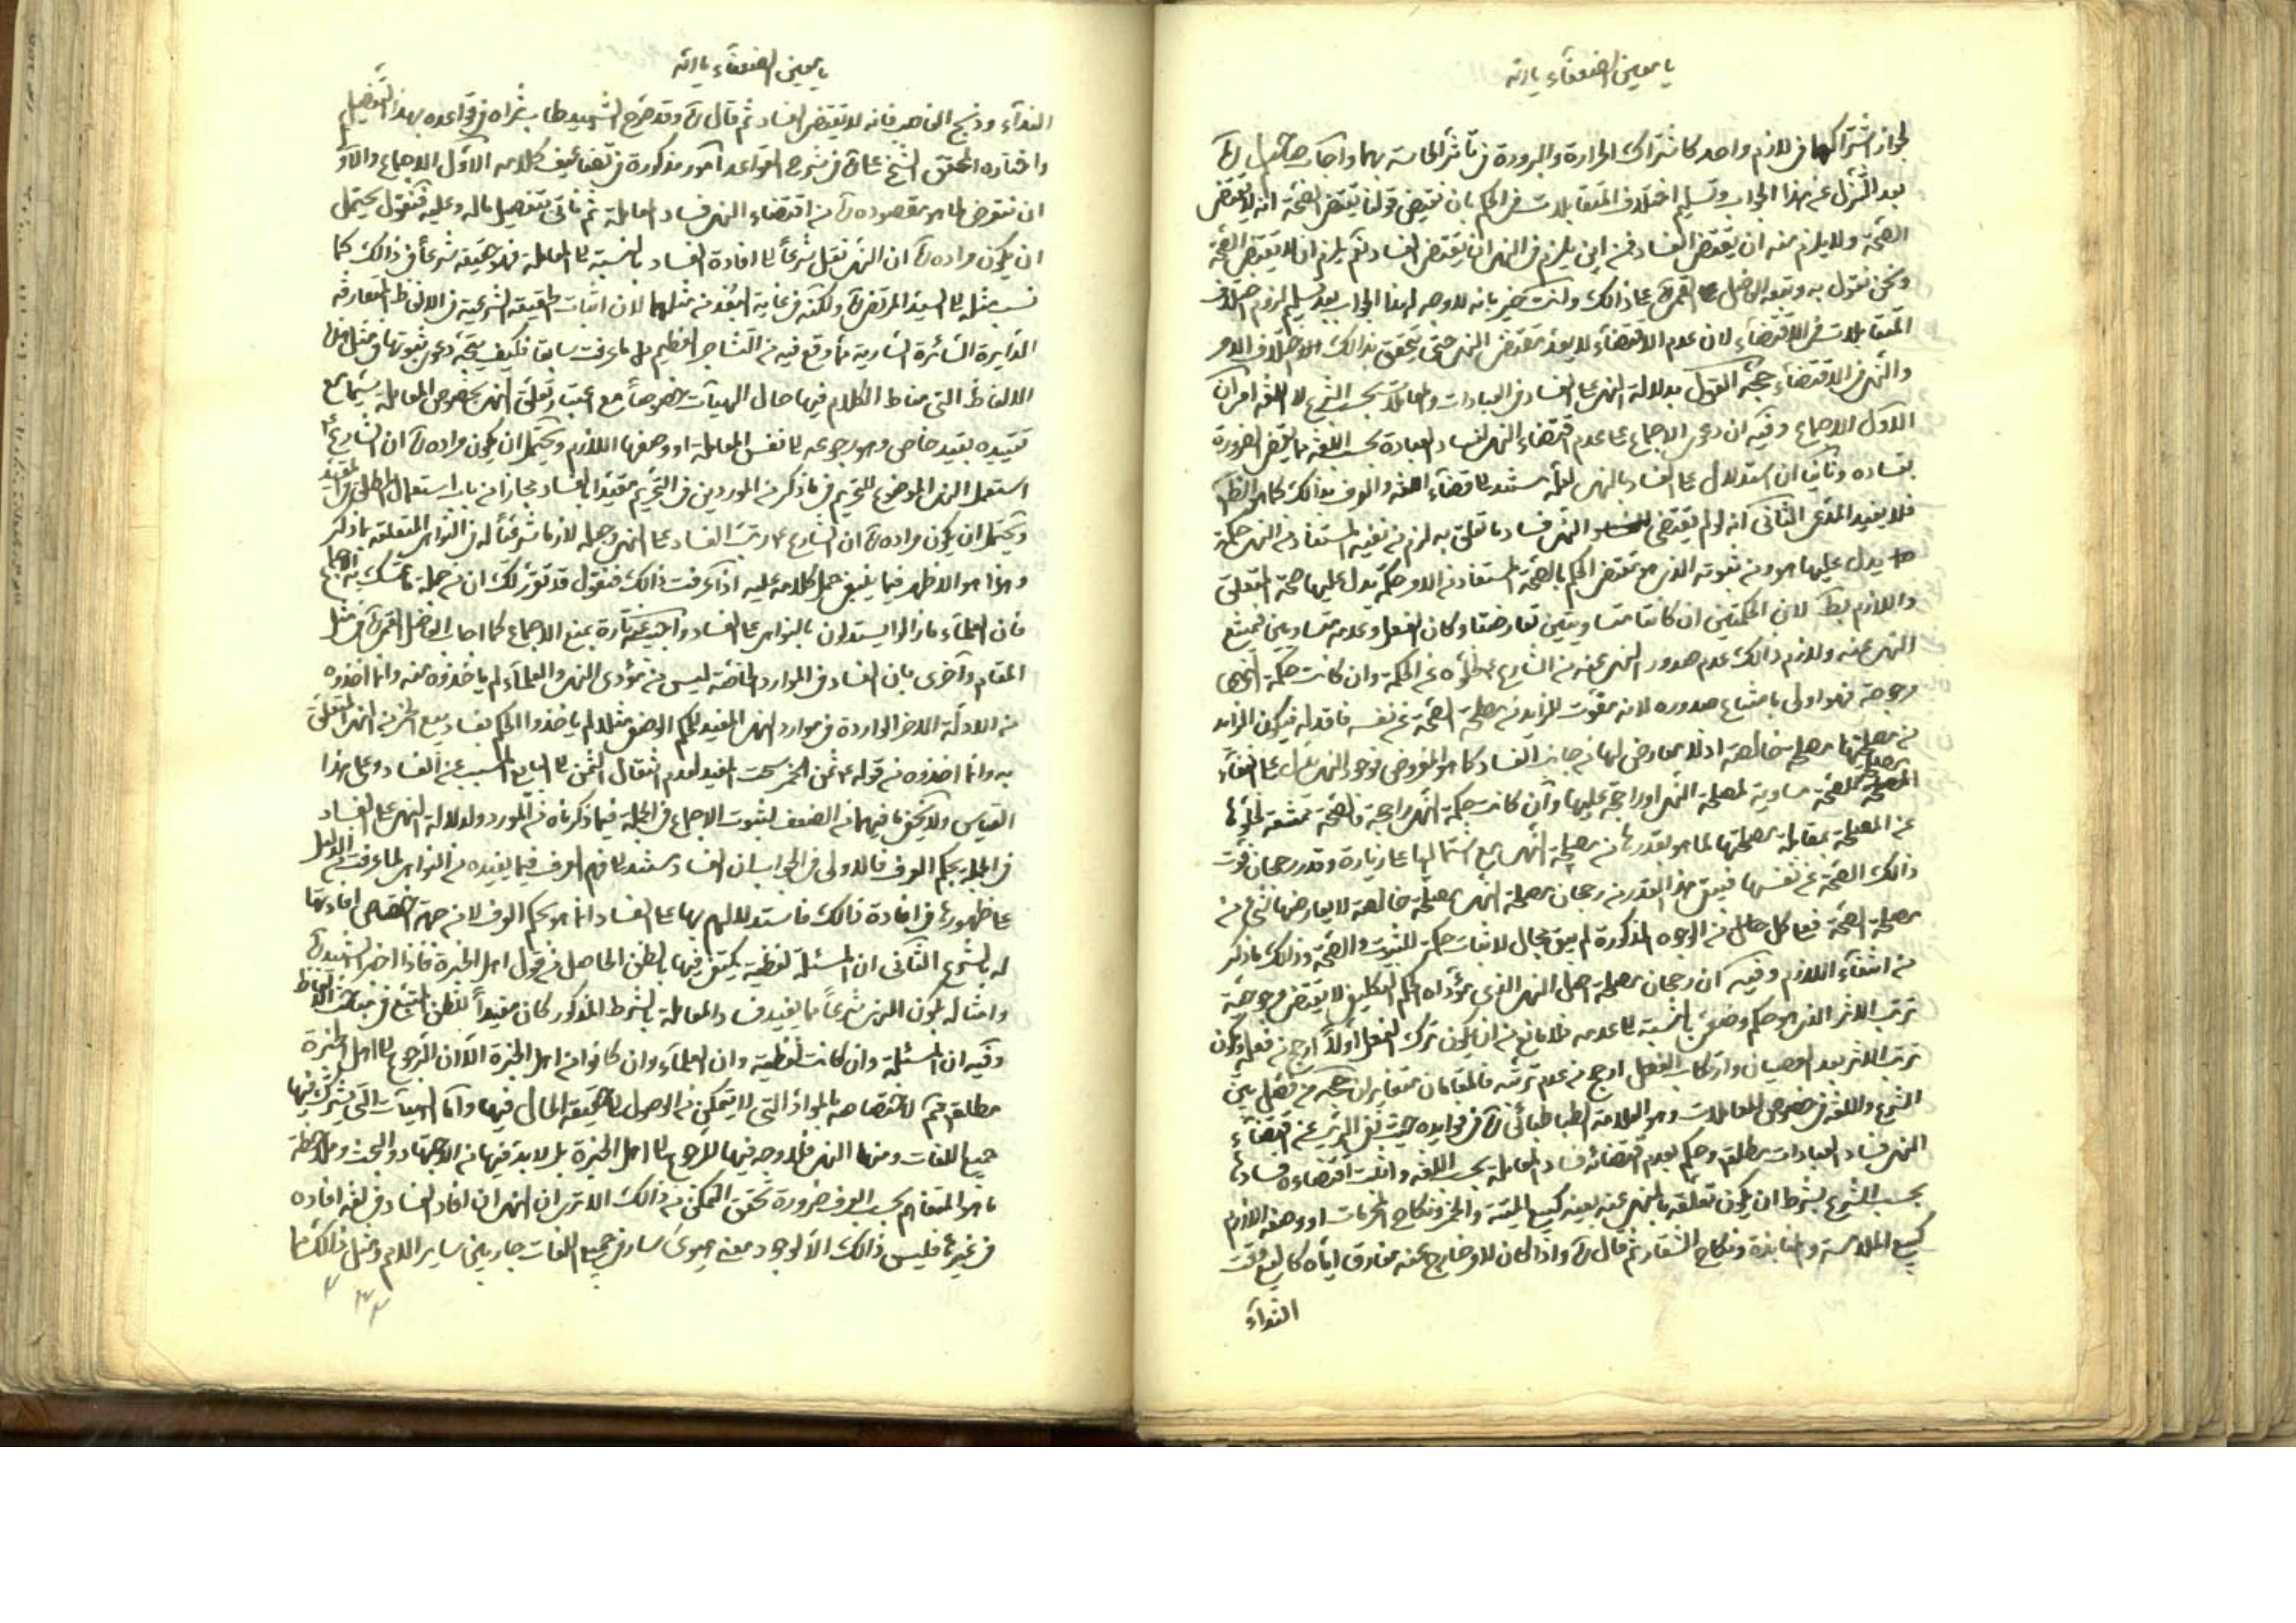 يا معين الضعفاء يا الله
لجواز اشتراكهما فى لازم واحد كاشتراك الحرارة والبرودة فى تأثر الحاسة بهما واجاب
بعد التنزل عن هذا الجواب وتسليم اختلاف المتقابلات فى الحكم بان نقيض قولنا يقتضى الصحة انه لا يقتضى
الصحة ولا يلزم منه ان يقتضى الفساد فمن اين يلزم فى النهى ان يقتضى الفساد نعم يلزم ان لا يقتضى الصحة
ونحن نقول به وتبعه الفاضل القمى على ذلك وانت خبير بانه لا وجه لهذا الجواب بعد تسليم لزوم اختلاف
المتقابلات فى الاقتضاء لان عدم الاقتضاء لا يعد مقتضى النهى حتى يتحقق بذلك اختلاف الامر
والنهى فى الاقتضاء حجة القول بدلالة النهى على الفساد فى العبادات والمعاملات بحسب الشرع لا اللغة امران
الاول الاجماع وفيه ان دعوى الاجماع على عدم اقتضاء النهى لفساد العبادة بحسب اللغة مما يقضى الضرورة
بفساده وثانيا ان استدلال على الفساد بالنهى لعله مستند لاقتضاء اللغة والعرف بذلك كما هو الظ
فلا يفيد المدعى الثانى انه لو لم يقتضى النهى فساد ما تعلق به لزم من نفيه المستفاد من النهى حكمة
يدل عليها هو ومن ثبوته الذى هو مقتضى الحكم بالصحة المستفاد من الامر حكمة يدل عليها صحة المتعلق
واللازم بط لان الحكمتين ان كانتا متساويتين تعارضتا وكان الفعل وعدمه متساويين فيمتنع
النهى عنه ولازم ذلك عدم صدور النهى عنه من الشارع لخلوه عن الحكمة وان كانت حكمة النهى
مرجوحة فهو اولى بامتناع صدوره لانه مفوت للزايد من مصلحة الصحة عن نفسه فاقد له فيكون الزايد
من مصلحتها مصلحة خالصة اذ لا معارض لها من جانب الفساد كما هو المفروض فوجود النهى يدل على انتفاء
مصلحة للصحة مساوية لمصلحة النهى او راجحة عليها وان كانت حكمة النهى راجحة فالصحة ممتنعة لخلوها
عن المصلحة بمقابلة مصلحتها لما هو بقدرها من مصلحة النهى مع اشتمالها على زيادة وقدر رجحان فوت
ذلك الصحة عن نفسها فيبقى هذا القدر من رجحان مصلحة النهى مصلحة خالصة لا يعارضها شئ من
مصلحة الصحة فعلى كل حال من الوجوه المذكورة لم يبق مجال لاثبات حكمة للثبوت والصحة وذلك ما ذكر
من انتفاء اللازم وفيه ان رجحان مصلحة اصل النهى الذى مؤداه الحكم التكليفى لا يقتضى مرجوحية
ترتب الاثر الذى هو حكم وضعى بالنسبة الى عدمه فلا مانع من ان يكون ترك الفعل اولا ارجح من فعله ويكون
ترتب الاثر بعد العصيان وارتكاب الفعل ارجح من عدم ترتبه فالمقامان متغايران حجة من فصل بين
الشرع واللغة فى خصوص المعاملات وهو العلامة الطباطبائى فى فوايده حيث نفى الريب عن اقتضاء
النهى فساد العبادات مطلقا وحكم بعدم اقتضائه فساد المعاملة بحسب اللغة واثبت اقتضاءه فسادها
بحسب الشرع بشرط ان يكون تعلقه بالمنهى عنه بعينه كبيع الميتة والخمر ونكاح المحرمات او وصفه اللازم
كبيع الملامسة والمنابذة ونكاح الشغار ثم قال واذا كان لامر خارج عنه مفارق اياه كالبيع وقت
النداء
يا معين الضعفاء يا الله
النداء وذبح الغاصب فانه لا يقتضى الفساد ثم قال وقد صرح الشهيد طاب ثراه فى قواعده بهذا التفصيل
واختاره المحقق الشيخ على فى شرح القواعد امور مذكورة فى تضاعيف كلامه الاول الاجماع والاولى
ان نتعرض لما هو مقصوده من اقتضاء النهى فساد المعاملة ثم نأتى بتفصيل ماله وعليه فنقول يحتمل
ان يكون مراده ان النهى نقل شرعا الى افادة الفساد بالنسبة الى المعاملة فهو حقيقة شرعا فى ذلك كما
نسب مثله الى السيد المرتضى ولكنه فى غاية البعد من مثلهما لان اثبات الحقيقة الشرعية فى الالفاظ المتعارفة
الدايرة السائرة السارية مما وقع فيه من التشاجر العظيم على ما عرفت سابقا فكيف يتجه دعوى ثبوتها فى مثل هذه
الالفاظ التى مناط الكلام فيها حال الهيئات خصوصا مع اعتبار تعلق النهى بخصوص المعاملة سيما مع
تقييده بقيد خاص وهو رجوعه الى نفس المعاملة او وصفها اللازم ويحتمل ان يكون مراده ان الشارع
استعمل النهى الموضوع للتحريم فى ما ذكر من الموردين فى التحريم مقيدا بالفساد مجازا من باب استعمال المطلق فى المقيد
ويحتمل ان يكون مراده ان الشارع رتب الفساد على النهى وجعله لازما شرعيا له فى النواهى المتعلقة بما ذكر
وهذا هو الاظهر فيما ينبغى حمل كلامه عليه اذا عرفت ذلك فنقول قد تقرر لك ان من جملة ما تمسك به الاجماع
فان العلماء ما زالوا يستدلون بالنواهى على الفساد واجيب عنه تارة بمنع الاجماع كما اجاب الفاضل القمى فى مثل
المقام واخرى بان الفساد فى الموارد الخاصة ليس من مؤدى النهى والعلماء لم ياخذوه منه وانما اخذوه
من الادلة الاخر الواردة فى موارد النهى المفيد للحكم الوضعى مثلا لم ياخذوا الحكم بفساد بيع الخمر من النهى المتعلق
به وانما اخذوه من قوله ثمن الخمر سحت المفيد لعدم انتقال الثمن الى البايع المسبب عن الفساد وعلى هذا
القياس ولا يخفى ما فيهما من الضعف لثبوت الاجماع فى الجملة فيما ذكرناه من المورد ولدلالة النهى على الفساد
فى الجملة بحكم العرف فالاولى فى الجواب ان الفساد مستند لافهم العرف فيما يفيده من النواهى لما عرفت من الدليل
على ظهورها فى افادة ذلك فاستدلالهم بها على الفساد انما هو بحكم العرف لا من جهة اختصاص افادتها
له بالشرع الثانى ان المسئلة لفظية يكتفى فيها بالظن الحاصل من قول اهل الخبرة فاذا اخبر الشهيد
وامثاله بكون النهى شرعا مما يفيد فساد المعاملة بالشرط المذكور كان مفيدا للظن المتبع فى مباحث الالفاظ
وفيه ان المسئلة وان كانت لفظية وان العلماء وان كانوا من اهل الخبرة الا ان الرجوع الى اهل الخبرة
مطلقا لاختصاصه بالمواد التى لا يتمكن من الوصول الى حقيقة الحال فيها واما الهيئات التى يشترك فيها
جميع اللغات ومنها النهى فلا وجه فيها للرجوع الى اهل الخبرة بل لا بد فيها من الاجتهاد والبحث وملاحظة
ما هو المتفاهم بحسب العرف ضرورة تحقق التمكن من ذلك الا ترى ان النهى ان افاد الفساد فى لغة افاده
فى غيرها فليس ذلك الا لوجود معنى سار فى جميع اللغات جار بين ساير الامم ومثل ذلك مما